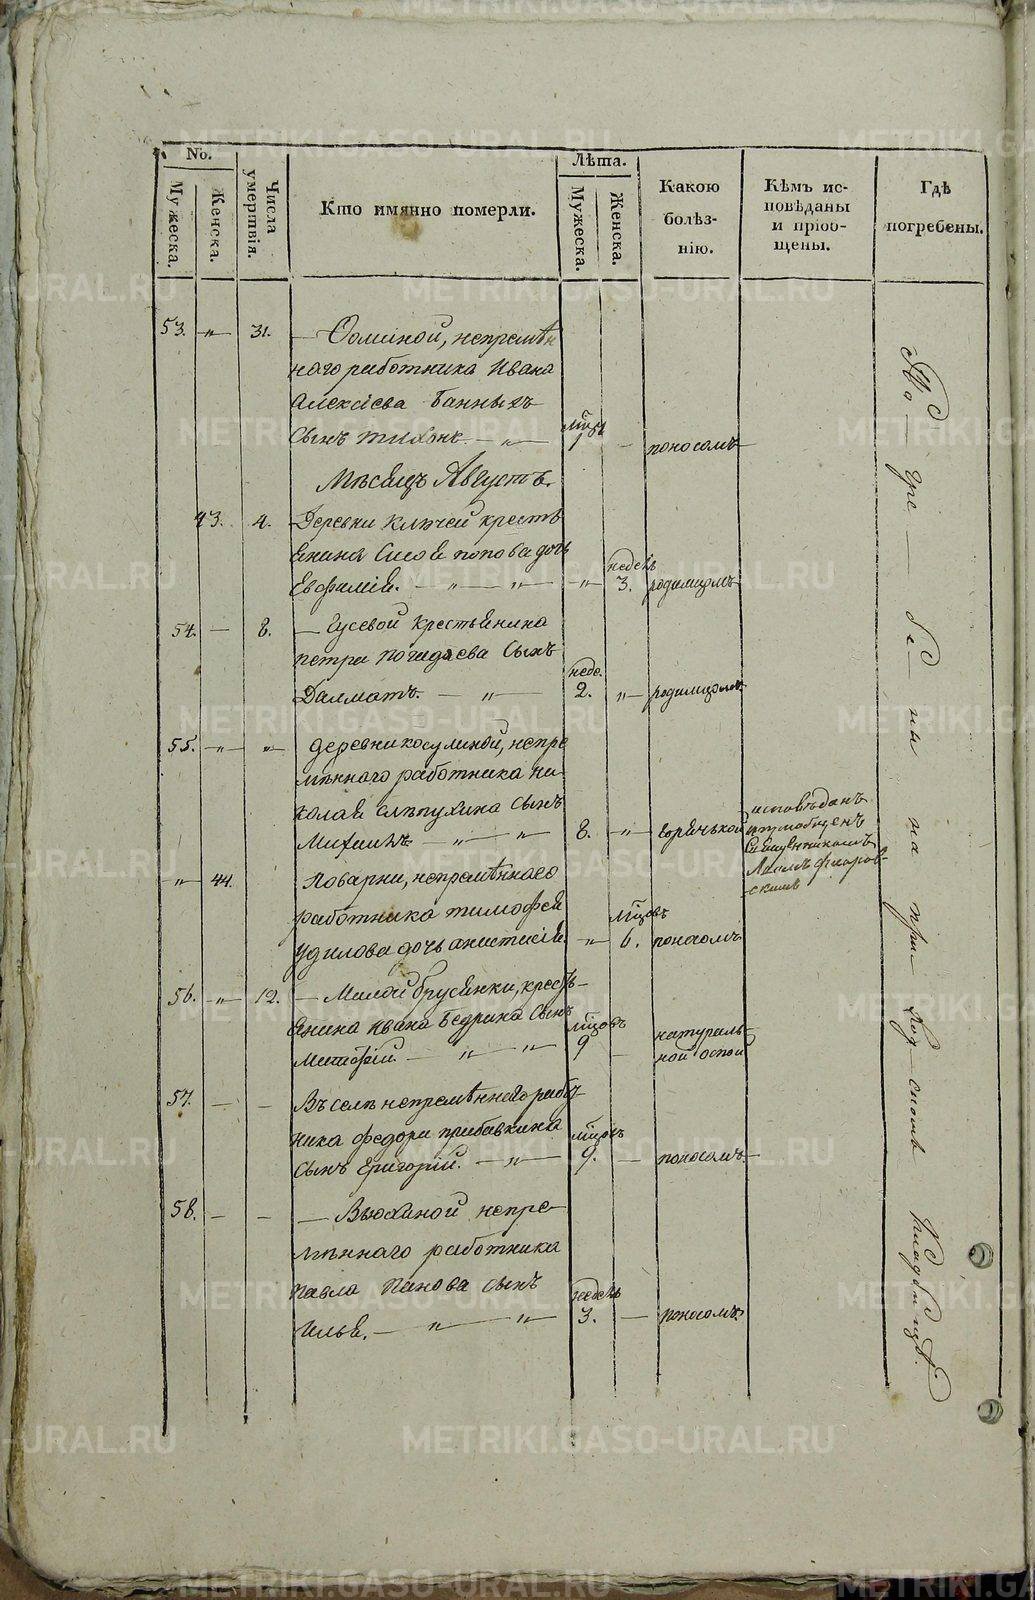 No.
Мужеска.
Женска.
Числа умертвія.
Кто имянно померли.
Лѣта.
Мужеска.
Женска.
Какою болѣз-
нію.
Кѣмъ ис-
повѣданы
и пріоб-
щены.
Гдѣ
погребены.
53. — „ — 31. — Ѳоминой, непремѣн
наго работника Ивана
Алексіева Банныхъ
сынъ Тихонъ. — „ — 1 — поносомъ
Мѣсяцъ Августъ.
43. 4. Деревни Ключей кресть
янина Сысоя Попова дочь
Евфимія. — „ — „ — „ — недель 3. родимцомъ
54. — 8. — Гусевой крестьянина
Петра Погадаева сынъ
Далматъ. — „ — неде. 2. „ — родимцомъ
55. — „ — „ деревни Косулиной, непре
мѣннаго работника Ни-
колая Слѣпухина сынъ
Михаилъ. — „ — „ 8. — „ — горячькой
исповѣданъ
и приобщенъ
Священникомъ
— „ — 44. Поварни, непремѣннаго
работника Тимофея
Удилова дочь Анистисія. — „ — мцовъ 6. поносомъ.
56. — „ — 12. — Малой Брусянки, кресть-
янина Ивана Бедрина сынъ
— „ — „ — мцовъ 9 — натураль-
ной оспой
57. — — Въ селѣ непремѣннаго работ-
ника Федора Прибавкина
сынъ Григорій. — „ — мцовъ 9. — поносомъ.
58. — — — Вьюхиной непре-
мѣннаго работника
Павла Панова сынъ
Илья. — „ — „ — недель 3. — поносомъ.
По — гре — бе — ны на при — ход — скомъ кладбищѣ.
METRIKI.GASO-URAL.RU